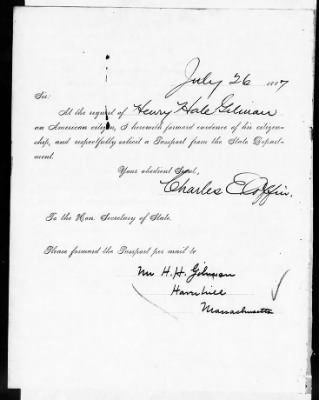 July 26 1887
Sir:
At the request of Henry Hale Gilman
an American citizen, I herewith forward evidence of his citizen-
ship, and respectfully solicit a Passport from the State Depart-
ment.
Your obedient Servt,
Charles E Coffin.
To the Hon. Secretary of State.
Please forward the Passport per mail to
Mr H. H. Gilman
Haverhill
Massachusetts